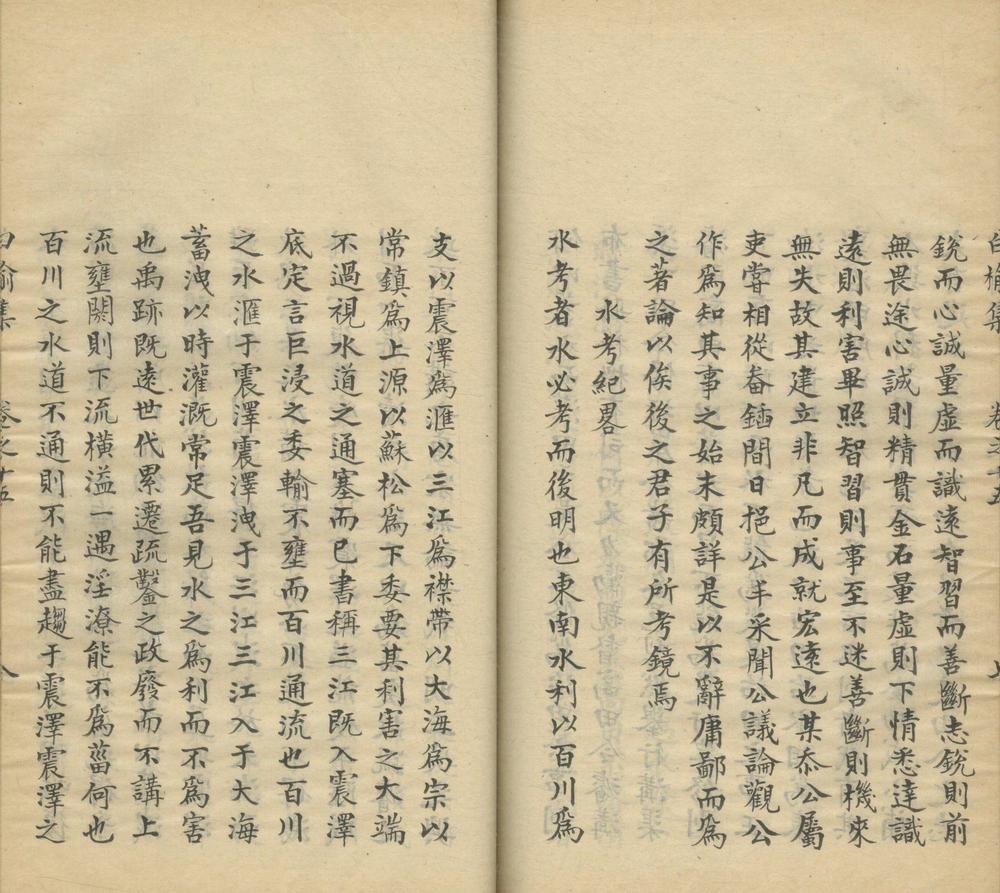 白榆集 卷之十五 七
銳而心誠量虛而識遠智習而善斷志銳則前
無畏途心誠則精貫金石量虛則下情悉達識
遠則利害畢照智習則事至不迷善斷則機來
無失故其建立非凡而成就宏遠也某忝公屬
吏嘗相從畚鍤間日挹公丰采聞公議論觀公
作爲知其事之始末頗詳是以不辭庸鄙而爲
之著論以俟後之君子有所考鏡焉
水考紀畧
水考者水必考而後明也東南水利以百川爲
支以震澤爲滙以三江爲襟帶以大海爲宗以
常鎮爲上源以蘇松爲下委要其利害之大端
不過視水道之通塞而已書稱三江既入震澤
底定言巨浸之委輸不壅而百川通流也百川
之水滙于震澤震澤洩于三江三江入于大海
蓄洩以時灌溉常足吾見水之爲利而不爲害
也禹跡既遠世代累遷疏鑿之政廢而不講上
流壅閼則下流橫溢一遇淫潦能不爲菑何也
百川之水道不通則不能盡趨于震澤震澤之
白榆集 卷之十五 八